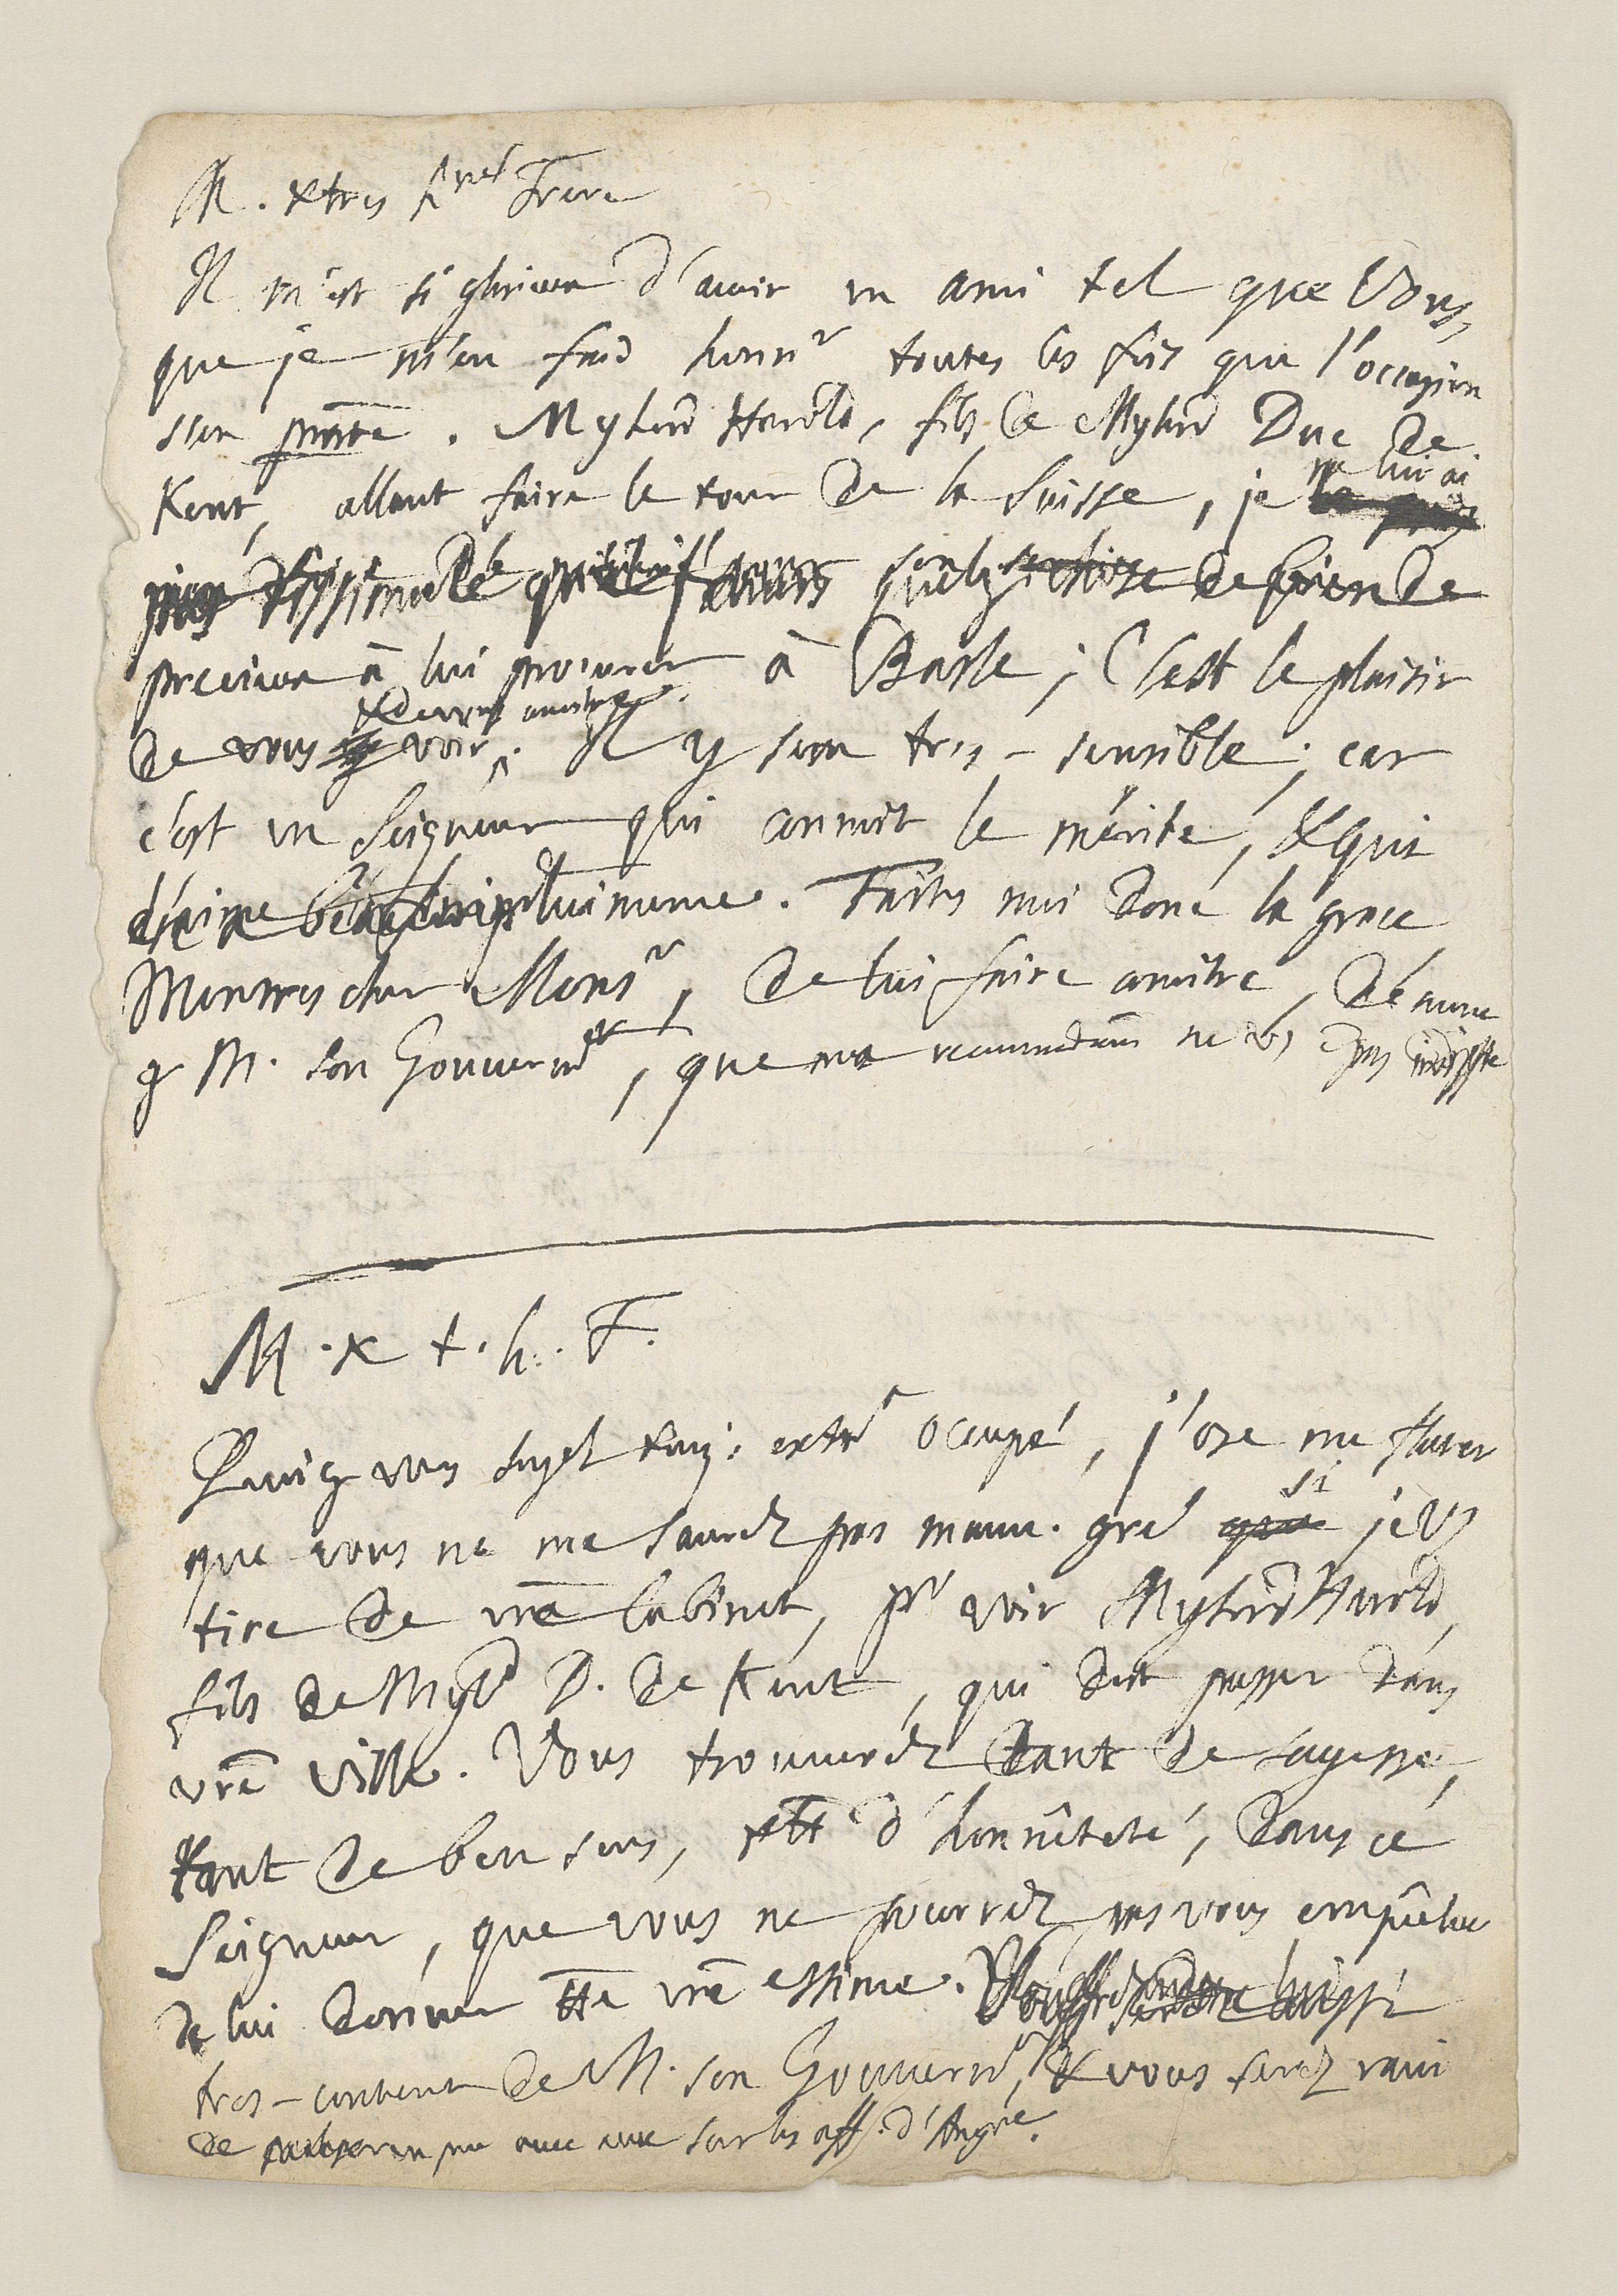 M. & tres h^ré Frere
Il m'est si glorieux d'avoir un ami tel que Vous,
que je m'en fais honn^r toutes les fois que l'occasion
s'en pn̄te. Mylord Harold, fils de Mylord Duc de
Kent, allant faire le tour de la Suisse, je ne lui ai
pas dissimulé que j'avois quelq chose de bien de
precieux à lui procurer à Basle; C'est le plaisir
de vous voir & de vous conoitre. Il y sera tres-sensible; car
c'est un Seigneur qui connoit le mérite, & qui
en a beaucoup lui meme. Faites moi donc la grace
Mon tres cher Mons^r, de lui faire conoitre, de meme
q M. son Gouvern^r, que ma recommdaōn ne vs pas
M. & t. h. F.
Quoiq vous soyez touj. extr^t occupé, j'ose me flater
que vous ne me saurez pas mauv. gré si je vs
tire de vrē Cabinet, p^r voir Mylord Harold,
fils de Myl^d D. de Kent, qui doit passer dans
vrē ville. Vous trouverez tant de sagesse,
tant de bon sens, & tt d'honnêteté, dans ce
Seigneur, que vous ne pourrez pas vous empêcher
de lui donner tte vrē estime. Vous serez aussi
tres-content de M. son Gouvern^r, & vous serez ravi
de parler un peu avec eux sur les aff. d'Angre.